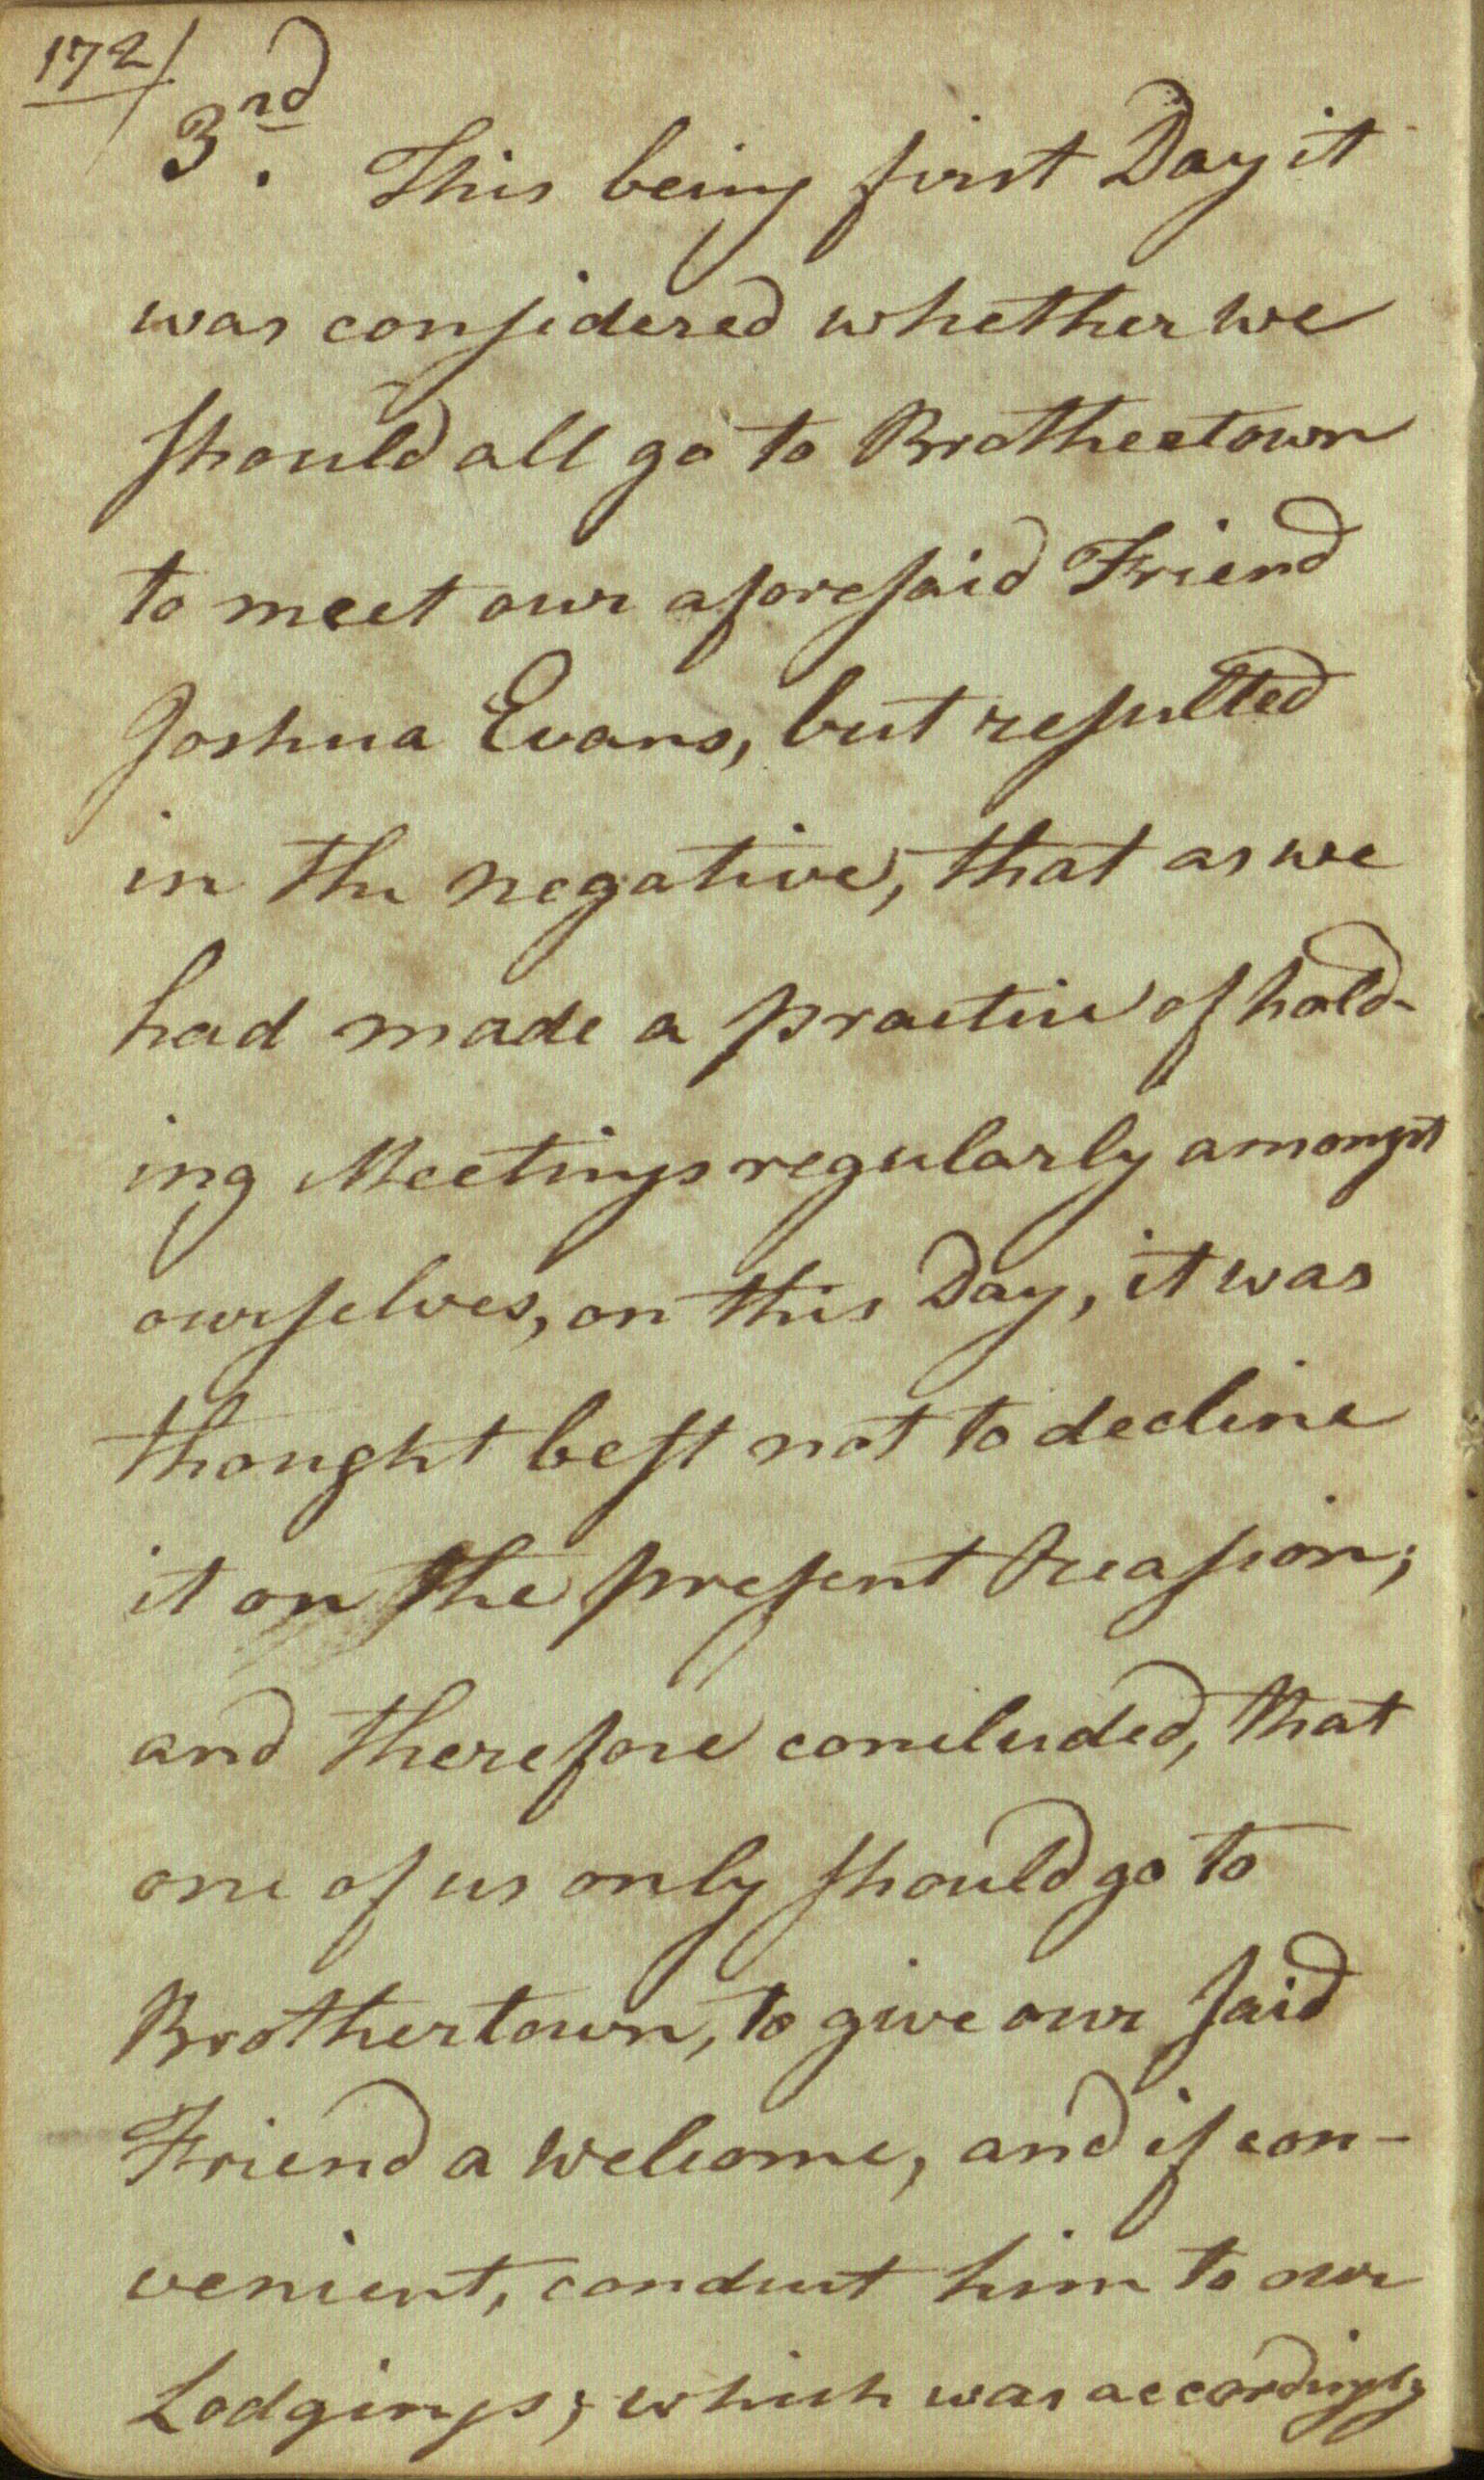 172/
3nd. This being first Day it
was considered whether we
should all go to Brothertown
to meet our aforesaid Friend
Joshua Evans, but resulted
in the negative, that as we
had made a practice of hold-
ing Meetings regularly amongst
ourselves, on this Day, it was
thought best not to decline
it on the present Occasion;
and therefore concluded, that
one of us only should go to
Brothertown, to give our said
Friend a welcome, and if con-
venient, conduct him to our
Lodgings; which was accordingly